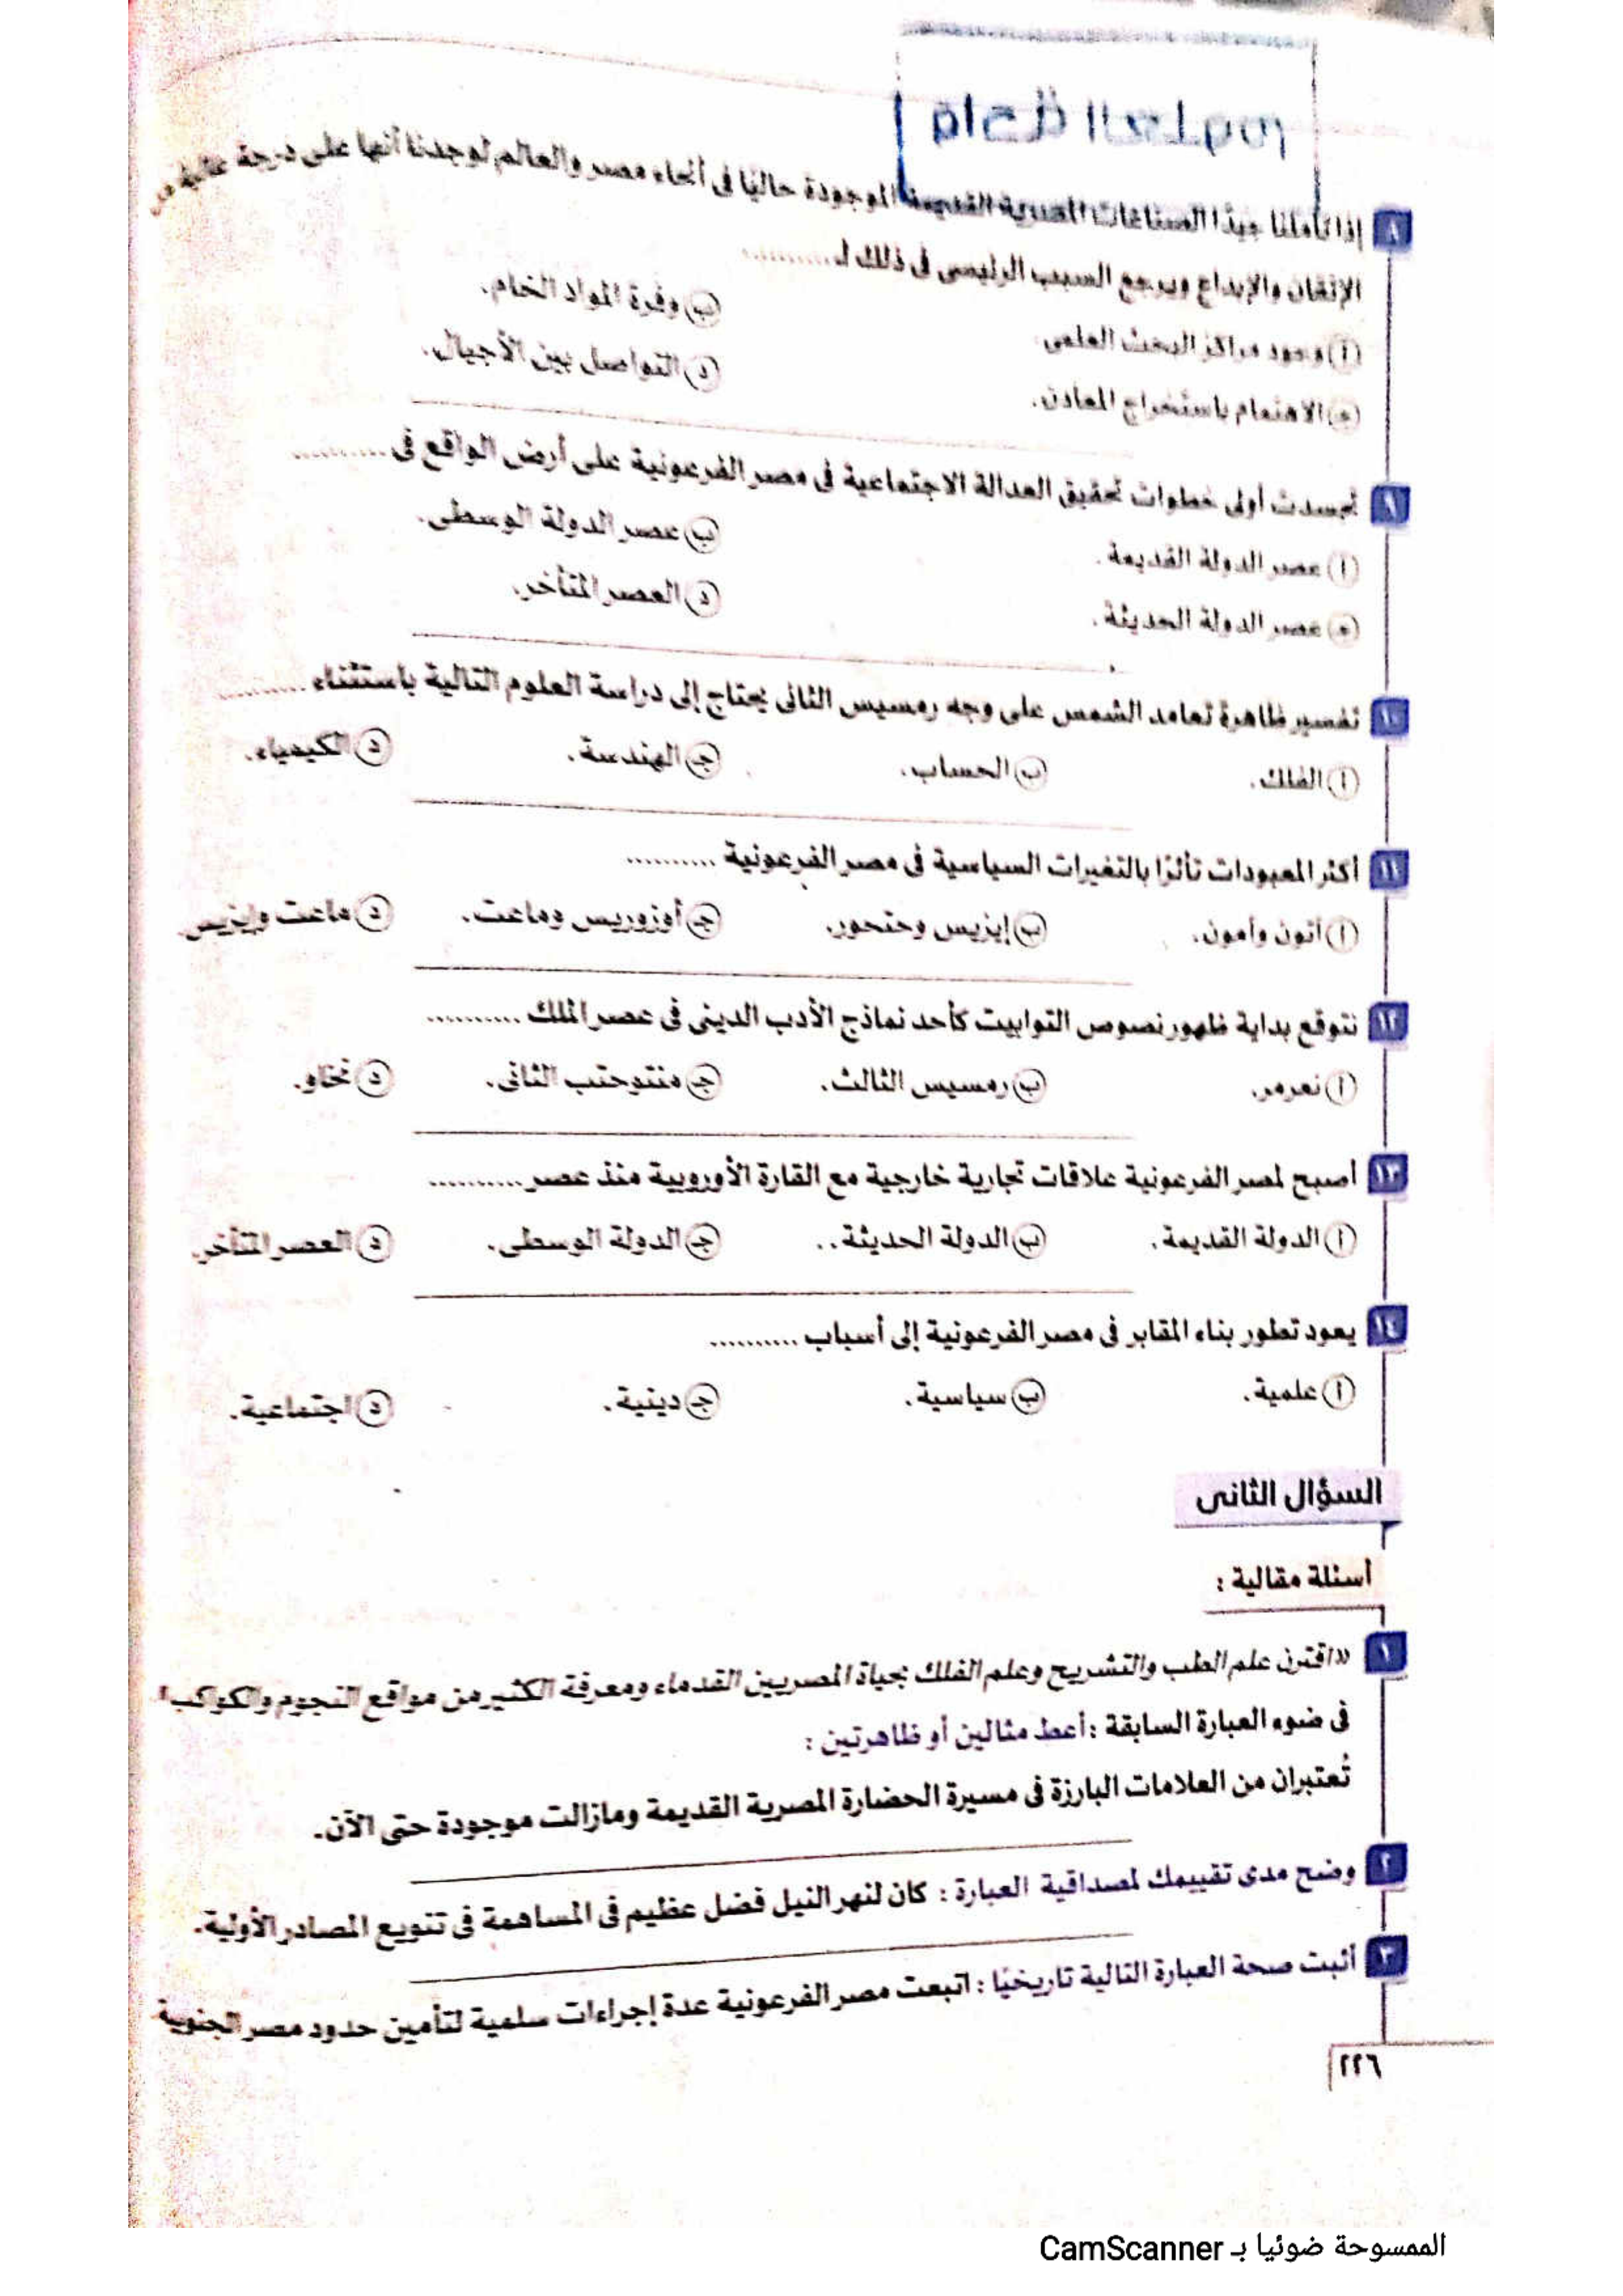 ٨ إذا تأملنا جيدًا الصناعات المصرية القديمة الموجودة حاليًا فى أنحاء مصر والعالم لوجدنا أنها على درجة عالية من
الإتقان والإبداع ويرجع السبب الرئيسى فى ذلك لـ ..........
أ وجود مراكز البحث العلمى. ب وفرة المواد الخام.
جـ الاهتمام باستخراج المعادن. د التواصل بين الأجيال.
٩ تجسدت أولى خطوات تحقيق العدالة الاجتماعية فى مصر الفرعونية على أرض الواقع فى ..........
أ عصر الدولة القديمة. ب عصر الدولة الوسطى.
جـ عصر الدولة الحديثة. د العصر المتأخر.
١٠ تفسير ظاهرة تعامد الشمس على وجه رمسيس الثانى يحتاج إلى دراسة العلوم التالية باستثناء ..........
أ الفلك. ب الحساب. جـ الهندسة. د الكيمياء.
١١ أكثر المعبودات تأثرًا بالتغيرات السياسية فى مصر الفرعونية ..........
أ آتون وآمون. ب إيزيس وحتحور. جـ أوزوريس وماعت. د ماعت وإيزيس.
١٢ نتوقع بداية ظهور نصوص التوابيت كأحد نماذج الأدب الدينى فى عصر الملك ..........
أ نعرمر. ب رمسيس الثالث. جـ منتوحتب الثانى. د نخاو.
١٣ أصبح لمصر الفرعونية علاقات تجارية خارجية مع القارة الأوروبية منذ عصر ..........
أ الدولة القديمة. ب الدولة الحديثة.. جـ الدولة الوسطى. د العصر المتأخر.
١٤ يعود تطور بناء المقابر فى مصر الفرعونية إلى أسباب ..........
أ علمية. ب سياسية. جـ دينية. د اجتماعية.
السؤال الثانى
أسئلة مقالية :
١ «اقترن علم الطب والتشريح وعلم الفلك بحياة المصريين القدماء ومعرفة الكثير من مواقع النجوم والكواكب»
فى ضوء العبارة السابقة : أعط مثالين أو ظاهرتين :
تُعتبران من العلامات البارزة فى مسيرة الحضارة المصرية القديمة ومازالت موجودة حتى الآن.
٢ وضح مدى تقييمك لمصداقية العبارة : كان لنهر النيل فضل عظيم فى المساهمة فى تنويع المصادر الأولية.
٣ أثبت صحة العبارة التالية تاريخيًا : اتبعت مصر الفرعونية عدة إجراءات سلمية لتأمين حدود مصر الجنوبية
٢٢٦
الممسوحة ضوئيا بـ CamScanner